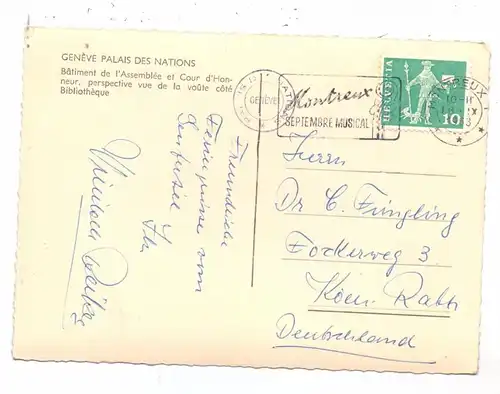 GENÈVE PALAIS DES NATIONS
Bâtiment de l'Assemblée et Cour d'Hon-
neur, perspective vue de la voûte côté
Bibliothèque
GENÈVE
Montreux
SEPTEMBRE MUSICAL
HELVETIA
10
MONTREUX 1
Freundliche
Feriengrüsse vom
Genfersee
Ihr
Herrn
Dr C. Füngling
Fockerweg 3
Köln Rath
Deutschland